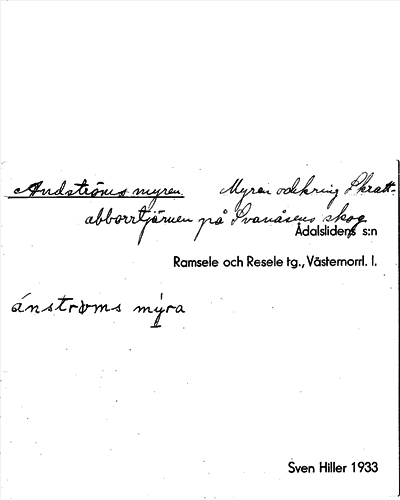 Andströms myren. Myren odikring Skratt-
abborrtjärnen på Svanåsens skog
Ådalslidens s:n
Ramsele och Resele tg., Västernorrl. l.
ánstrωms mýra
Sven Hiller 1933